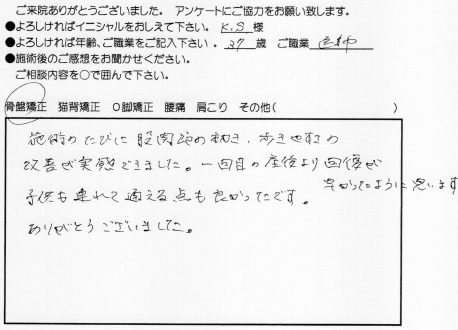 ご来院ありがとうございました。 アンケートにご協力をお願い致します。
●よろしければイニシャルをおしえて下さい。 K.S 様
●よろしければ年齢、ご職業をご記入下さい。 37 歳 ご職業 医師
●施術後のご感想をお聞かせください。
ご相談内容を○で囲んで下さい。
骨盤矯正 猫背矯正 O脚矯正 腰痛 肩こり その他( )
施術のたびに股関節の動き、歩きやすさの
改善が実感できました。一回目の産後より回復が
早かったように思います
子供も連れて通える点も良かったです。
ありがとうございました。